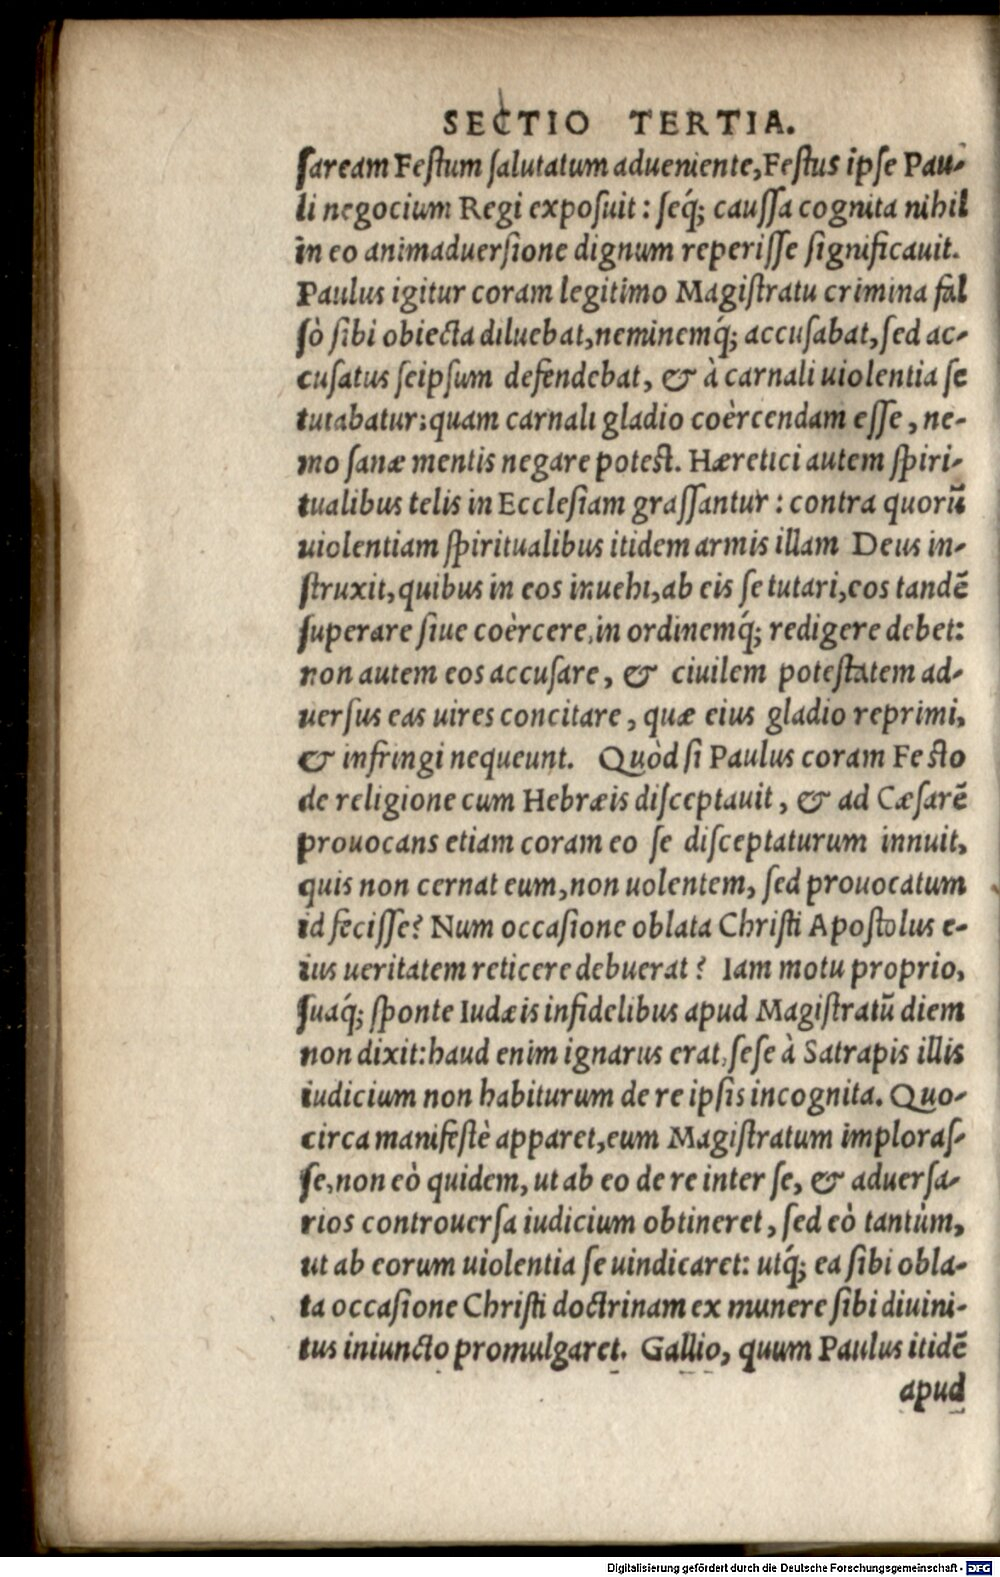 SECTIO TERTIA.
ſaream Feſtum ſalutatum adueniente, Feſtus ipſe Pau-
li negocium Regi expoſuit: ſeq́; cauſſa cognita nihil
in eo animaduerſione dignum reperiſſe ſignificauit.
Paulus igitur coram legitimo Magiſtratu crimina fal
ſò ſibi obiecta diluebat, neminemq́; accuſabat, ſed ac-
cuſatus ſeipſum defendebat, & à carnali uiolentia ſe
tutabatur: quam carnali gladio coèrcendam eſſe, ne-
mo ſanæ mentis negare poteſt. Hæretici autem ſpiri-
tualibus telis in Eccleſiam graſſantur: contra quorũ
uiolentiam ſpiritualibus itidem armis illam Deus in-
ſtruxit, quibus in eos inuehi, ab eis ſe tutari, eos tandẽ
ſuperare ſiue coèrcere, in ordinemq́; redigere debet:
non autem eos accuſare, & ciuilem poteſtatem ad-
uerſus eas uires concitare, quæ eius gladio reprimi,
& infringi nequeunt. Quòd ſi Paulus coram Feſto
de religione cum Hebræis diſceptauit, & ad Cæſarẽ
prouocans etiam coram eo ſe diſceptaturum innuit,
quis non cernat eum, non uolentem, ſed prouocatum
id feciſſe? Num occaſione oblata Chriſti Apoſtolus e-
ius ueritatem reticere debuerat? Iam motu proprio,
ſuaq́; ſponte Iudæis infidelibus apud Magiſtratũ diem
non dixit: haud enim ignarus erat, ſeſe à Satrapis illis
iudicium non habiturum de re ipſis incognita. Quo-
circa manifeſtè apparet, eum Magiſtratum imploraſ-
ſe, non eò quidem, ut ab eo de re inter ſe, & aduerſa-
rios controuerſa iudicium obtineret, ſed eò tantùm,
ut ab eorum uiolentia ſe uindicaret: utq́; ea ſibi obla-
ta occaſione Chriſti doctrinam ex munere ſibi diuini-
tus iniuncto promulgaret. Gallio, quum Paulus itidẽ
apud
Digitalisierung gefördert durch die Deutsche Forschungsgemeinschaft - DFG